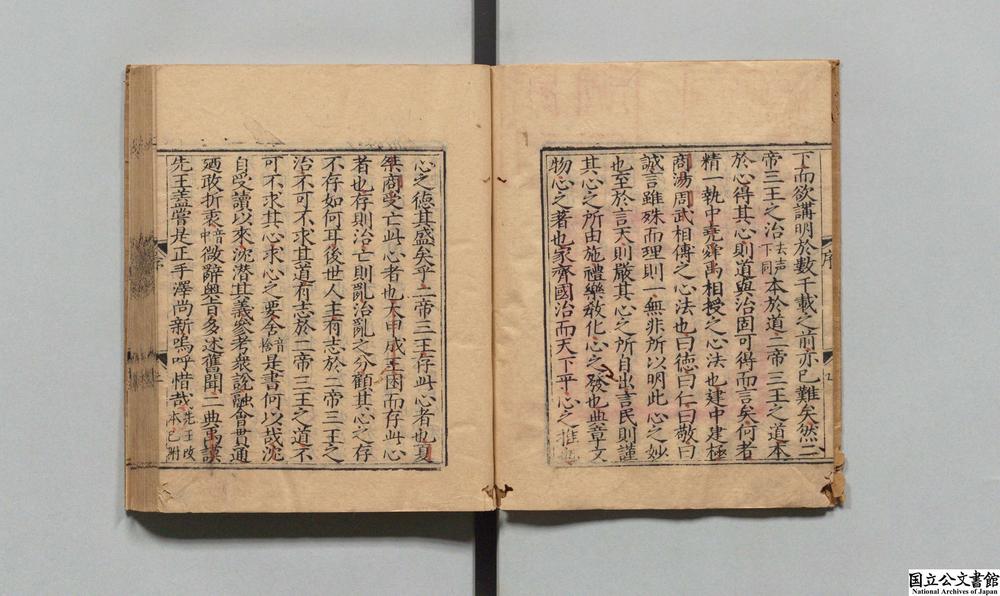 下而欲講明於數千載之前亦已難矣然二
帝三王之治去声下同本於道二帝三王之道本
於心得其心則道與治固可得而言矣何者
精一執中堯舜禹相授之心法也建中建極
商湯周武相傳之心法也曰德曰仁曰敬曰
誠言雖殊而理則一無非所以明此心之妙
也至於言天則嚴其心之所自出言民則謹
其心之所由施禮樂教化心之發也典章文
物心之著也家齊國治而天下平心之推也
心之德其盛矣乎二帝三王存此心者也夏
桀商受亡此心者也太甲成王困而存此心
者也存則治亡則亂治亂之分顧其心之存
不存如何耳後世人主有志於二帝三王之
治不可不求其道有志於二帝三王之道不
可不求其心求心之要舍音捨是書何以哉沈
自受讀以來沈潜其義參考衆說融會貫通
廼敢折衷音中微辭奥旨多述舊聞二典禹謨
先王盖嘗是正手澤尚新嗚呼惜哉先王改本已附
序
序
国立公文書館
National Archives of Japan